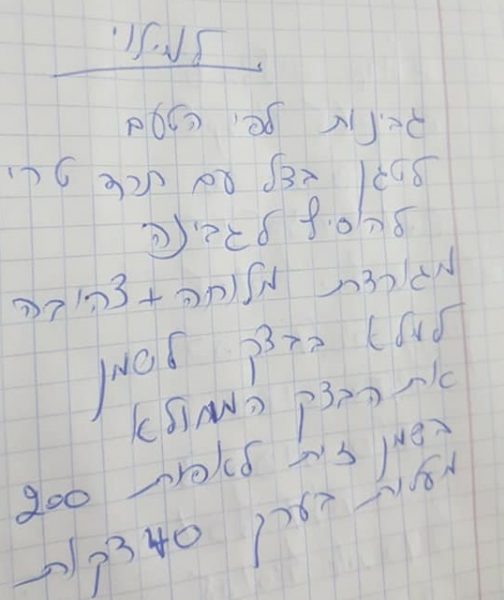 למילוי
גבינות לפי הטעם
לטגן בצל עם תרד טרי
להוסיף לגבינה
מגורדת מלוחה + צהובה
למלא בבצק לשמן
את הבצק הממולא
בשמן זית לאפות 200
מעלות בערך 40 דקות